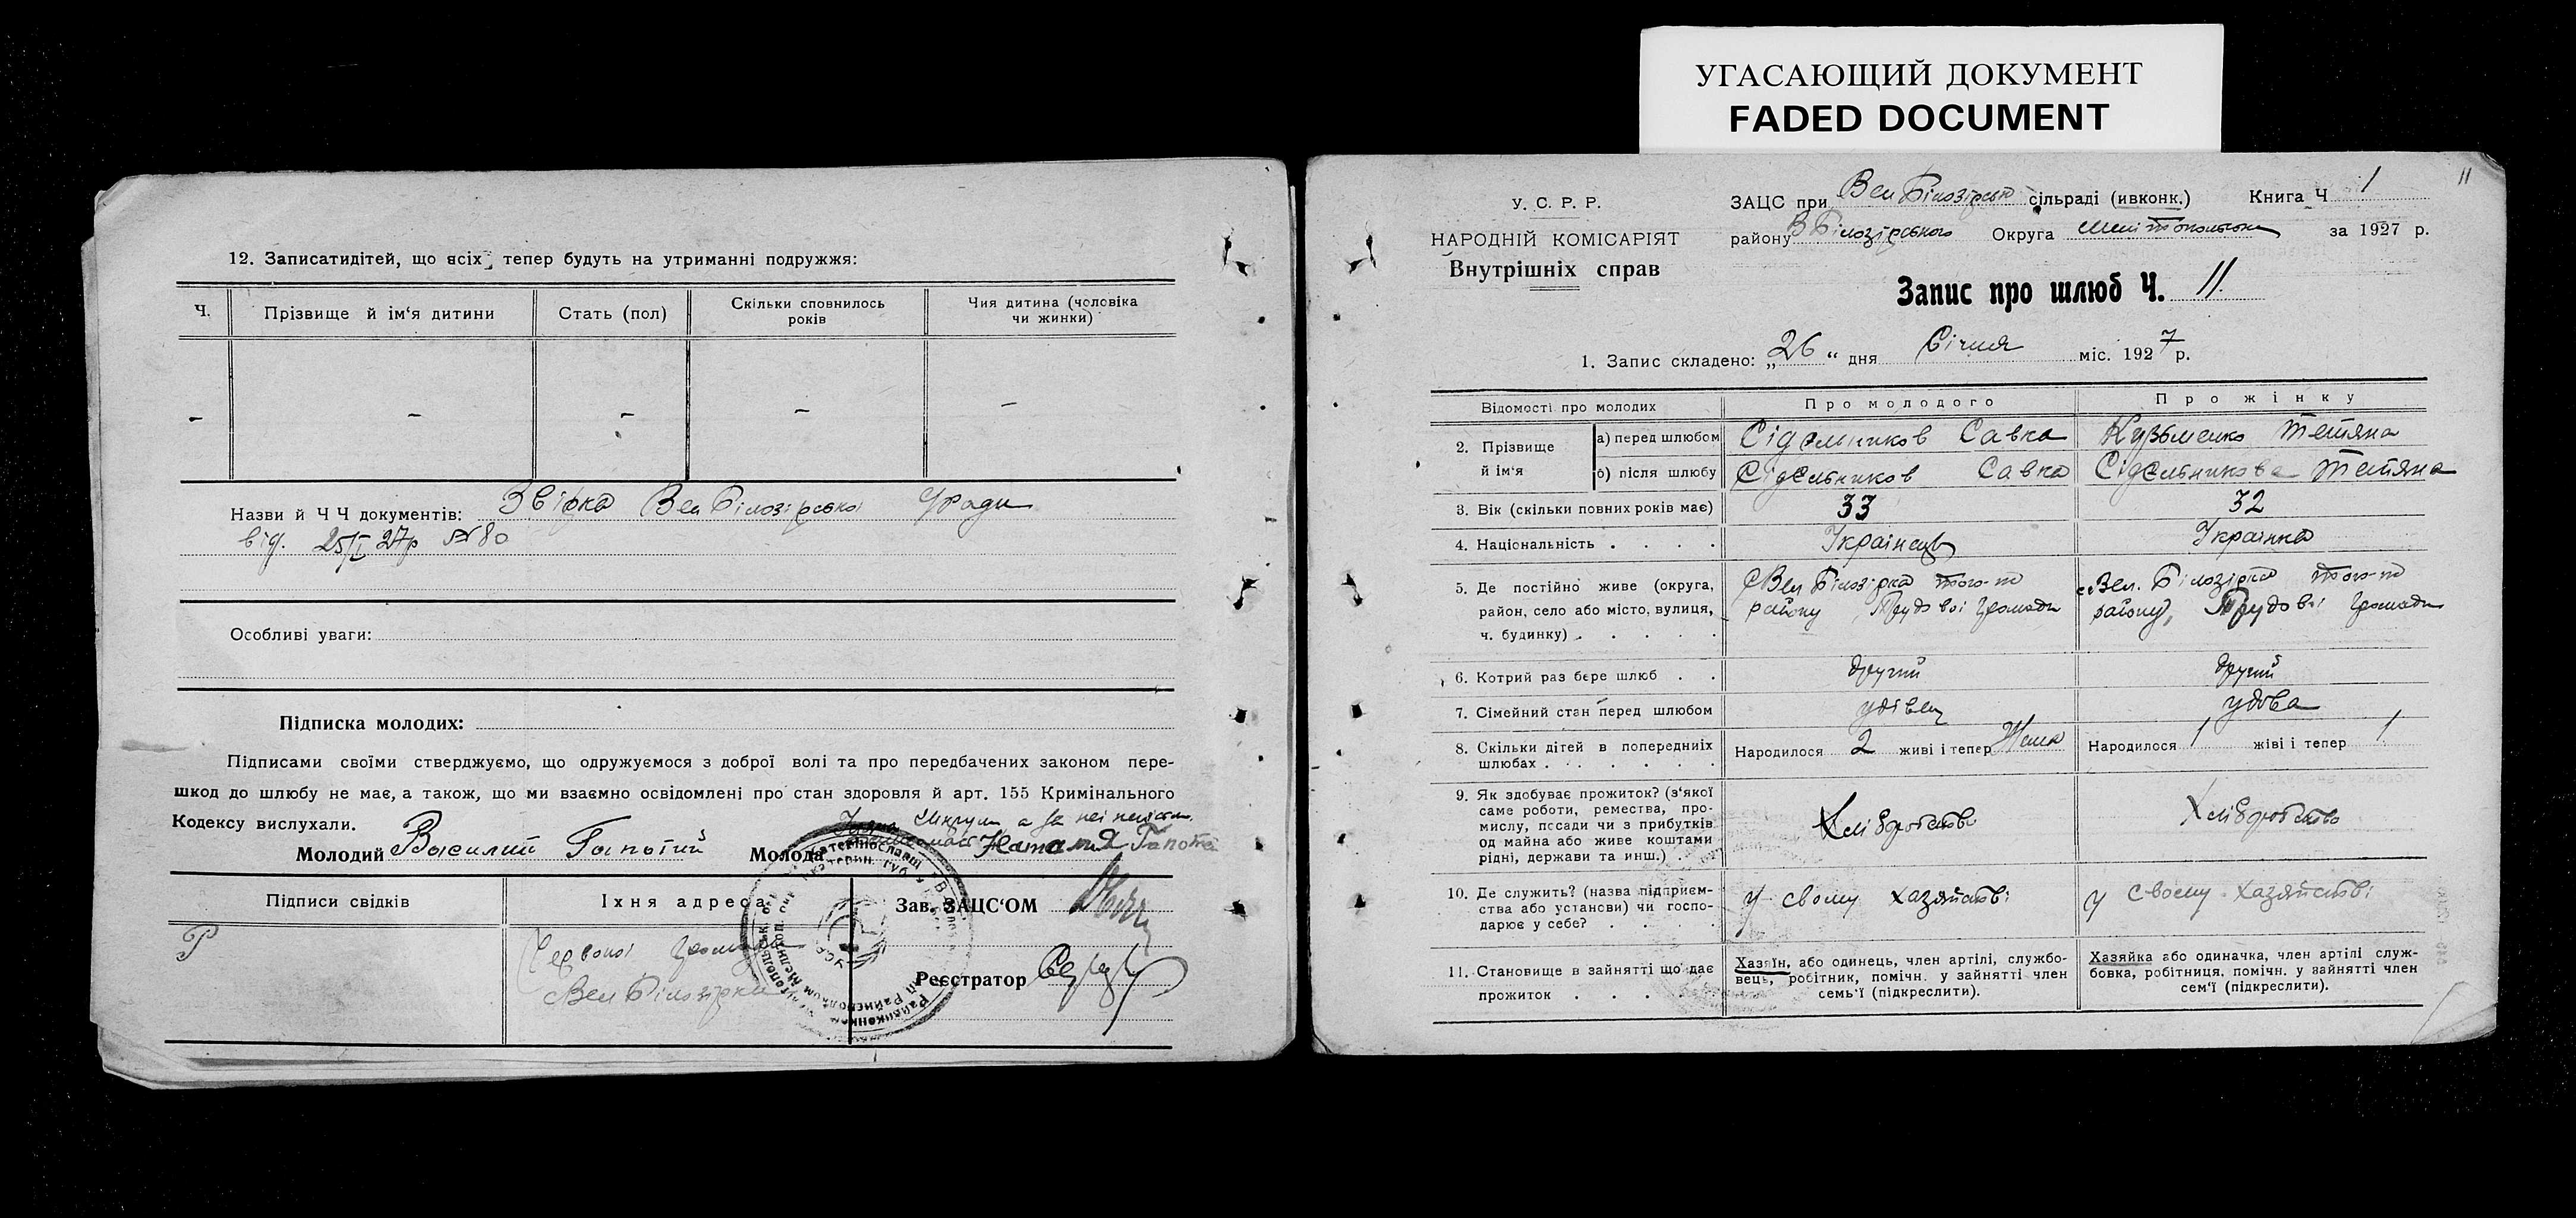 УГАСАЮЩИЙ ДОКУМЕНТ
FADED DOCUMENT
12. Записатидітей, що всіх тепер будуть на утриманні подружжя:
Ч. Прізвище й ім'я дитини Стать (пол) Скільки сповнилось років Чия дитина (чоловіка чи жинки)
– – – – –
Назви й Ч Ч документів: Звірка Вел Білозірської
від. 25/I 27р №80
Особливі уваги:
Підписка молодих:
Підписами своїми стверджуємо, що одружуємося з доброї волі та про передбачених законом пере-
шкод до шлюбу не має, а також, що ми взаємно освідомлені про стан здоровля й арт. 155 Кримінального
Кодексу вислухали.
Молодий Василий Гапотий Молода Наталия
Підписи свідків Їхня адреса Зав. ЗАЦС'ОМ
Червоної громади
Вел Білозірки
Реєстратор
11
У. С. Р. Р.
НАРОДНІЙ КОМІСАРІЯТ
Внутрішніх справ
ЗАЦС при Вел Білозірськ сільраді (ивконк.) Книга Ч 1
району В Білозірського Округа Мелітопольська за 1927 р.
Запис про шлюб Ч. 11.
1. Запис складено: „26" дня Січня міс. 1927 р.
Відомості про молодих Про молодого Про жінку
2. Прізвище й ім'я
а) перед шлюбом Сідельников Савка Кузьменко Тетяна
б) після шлюбу Сідельников Савка Сідельникова Тетяна
3. Вік (скільки повних років має) 33 32
4. Національність . . . . Українець Українка
5. Де постійно живе (округа, район, село або місто, вулиця, ч. будинку) . . . . .
с Вел Білозірка того-ж району Трудової громади
с Вел. Білозірка того-ж району, Трудової громади
6. Котрий раз бере шлюб . . другий другий
7. Сімейний стан перед шлюбом удівец удова
8. Скільки дітей в попередниіх шлюбах . . . . . .
Народилося 2 живі і тепер Нема Народилося 1 жіві і тепер 1
9. Як здобуває прожиток? (з'якої саме роботи, ремества, промислу, посади чи з прибутків од майна або живе коштами рідні, держави та инш.) .
Хліборобство Хліборобство
10. Де служить? (назва підприємства або установи) чи господарює у себе? . . . .
У своему хазяйстві у своему хазяйстві
11. Становище в зайнятті що дає прожиток . . . .
Хазяїн, або одинець, член артілі, службовець, робітник, помічн. у зайнятті член семь'ї (підкреслити).
Хазяйка або одиначка, член артілі службовка, робітниця, помічн. у зайнятті член сем'ї (підкреслити).